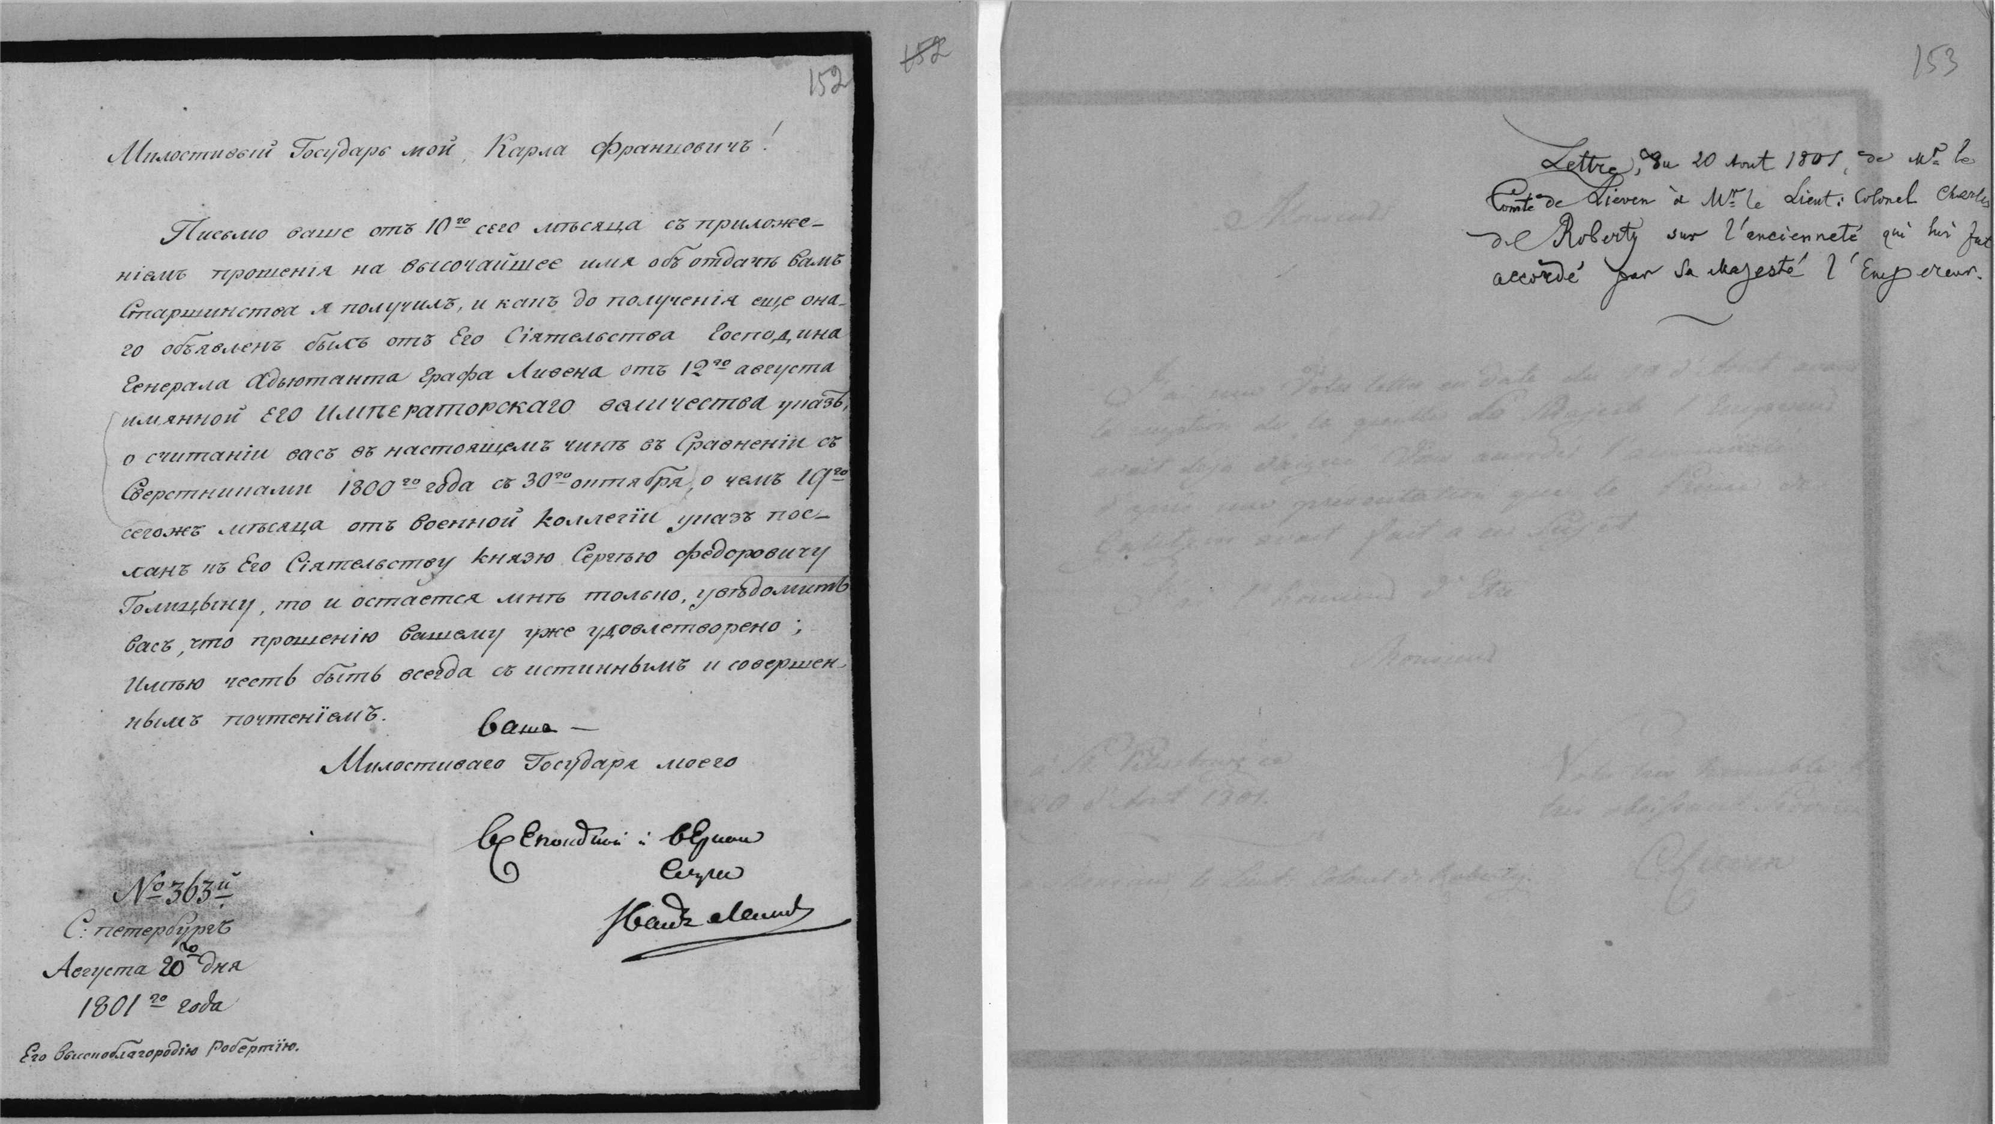 152
152
Милостивый Государь мой, Карла Францовичъ!
Письмо ваше отъ 10го сего мѣсяца съ приложе-
ніемъ прошенія на высочайшее имя объ отдачѣ вамъ
Старшинства я получилъ, и какъ до полученія еще она-
го объявленъ былъ отъ Его Сіятельства Господина
Генерала Адьютанта Графа Ливена отъ 12го августа
имянной ЕГО ИМПЕРАТОРСКАГО величества указъ,
о считаніи васъ въ настоящемъ чинѣ въ Сравненіи съ
Сверстниками 1800го года съ 30го октября, о чемъ 19го
сегожъ мѣсяца отъ военной коллегіи указъ пос-
ланъ къ Его Сіятельству князю Сергѣю Федоровичу
Голицыну, то и остается мнѣ только, увѣдомить
васъ, что прошенію вашему уже удовлетворено;
Имѣю честь быть всегда съ истиннымъ и совершен-
нымъ почтеніемъ.
Ваше —
Милостиваго Государя моего
№ 363й
С: петербургъ
Августа 20го дня
1801го года
Его Высокоблагородію Робертію.
153
Lettre, du 20 Aout 1801, de Mr. le
Comte de Lieven à Mr. le Lieut: Colonel Charles
de Roberty sur l'encienneté qui lui fut
accordé par Sa Majesté l'Empereur.
Monsieur
J'ai reçu Votre lettre en date du 10 d'Aout avant
la reception de la quelle Sa Majesté l'Empereur
avait déja daigné Vous accorder l'ancienneté
presentation que le Prince de
Galitzin avait fait à ce Sujet
J'ai l'honneur d'Etre
Monsieur
à St. Petersbourg ce
20 d'Aout 1801.
Votre très humble
très obeissant
CLieven
à Monsieur le Lieut: Colonel de Roberty.